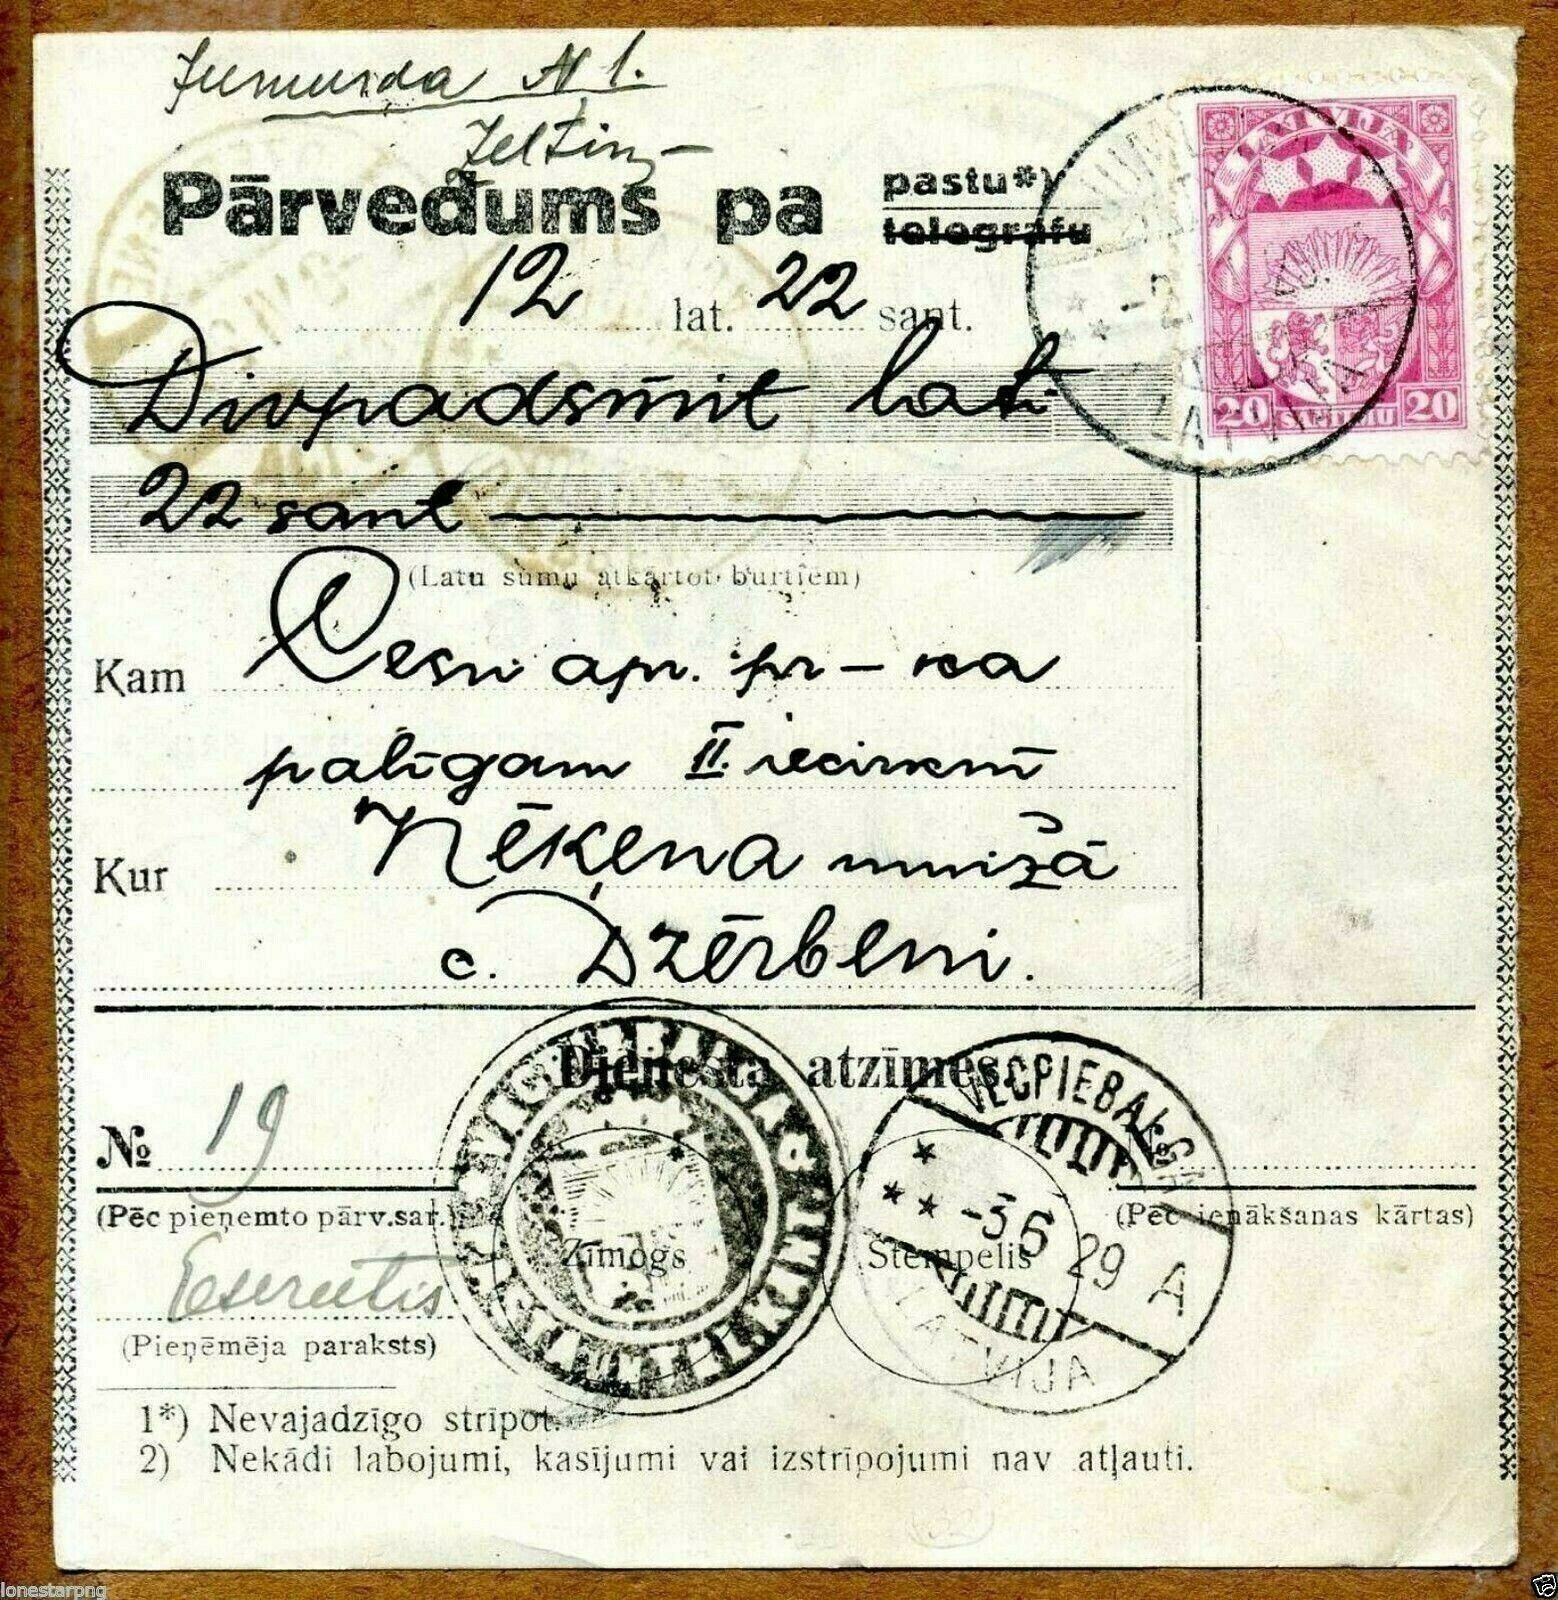 Jumurda № 1.
Zeltiņ
Pārvedums pa pastu*)
telegrafu
12 lat. 22 sant.
Divpadsmit lati
22 sant
(Latu sumu atkārtot burtiem)
Kam Cesu apr. pr-ka
palīgam II. iecirknī
Kur Nēķena muižā
c. Dzērbeni.
LATVIJA
20 SANTIMU 20
LATVIJA
Dienesta atzīmes.
VECPIEBALGA
№ 19
(Pēc pieņemto pārv.sar.)
Zīmogs
Stempelis
-3 6 29 A
(Pēc ienākšanas kārtas)
LATVIJA
(Pieņēmēja paraksts)
1*) Nevajadzīgo stripot.
2) Nekādi labojumi, kasījumi vai izstrīpojumi nav atļauti.
lonestarpng